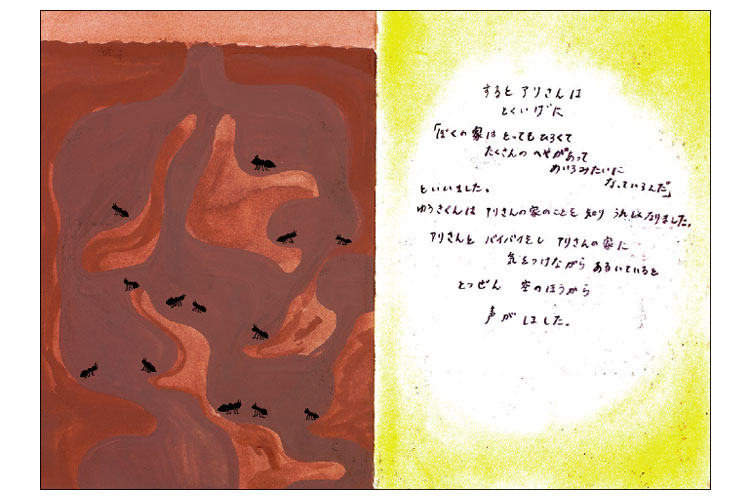 するとアリさんは
とくいげに
「ぼくの家はとってもひろくて
たくさんのへやがあって
めいろみたいに
なっているんだ」
といいました。
ゆうきくんは アリさんの家のことを 知り うれしくなりました。
アリさんと バイバイをし アリさんの家に
気をつけながら あるいていると
とつぜん 空のほうから
声がしました。